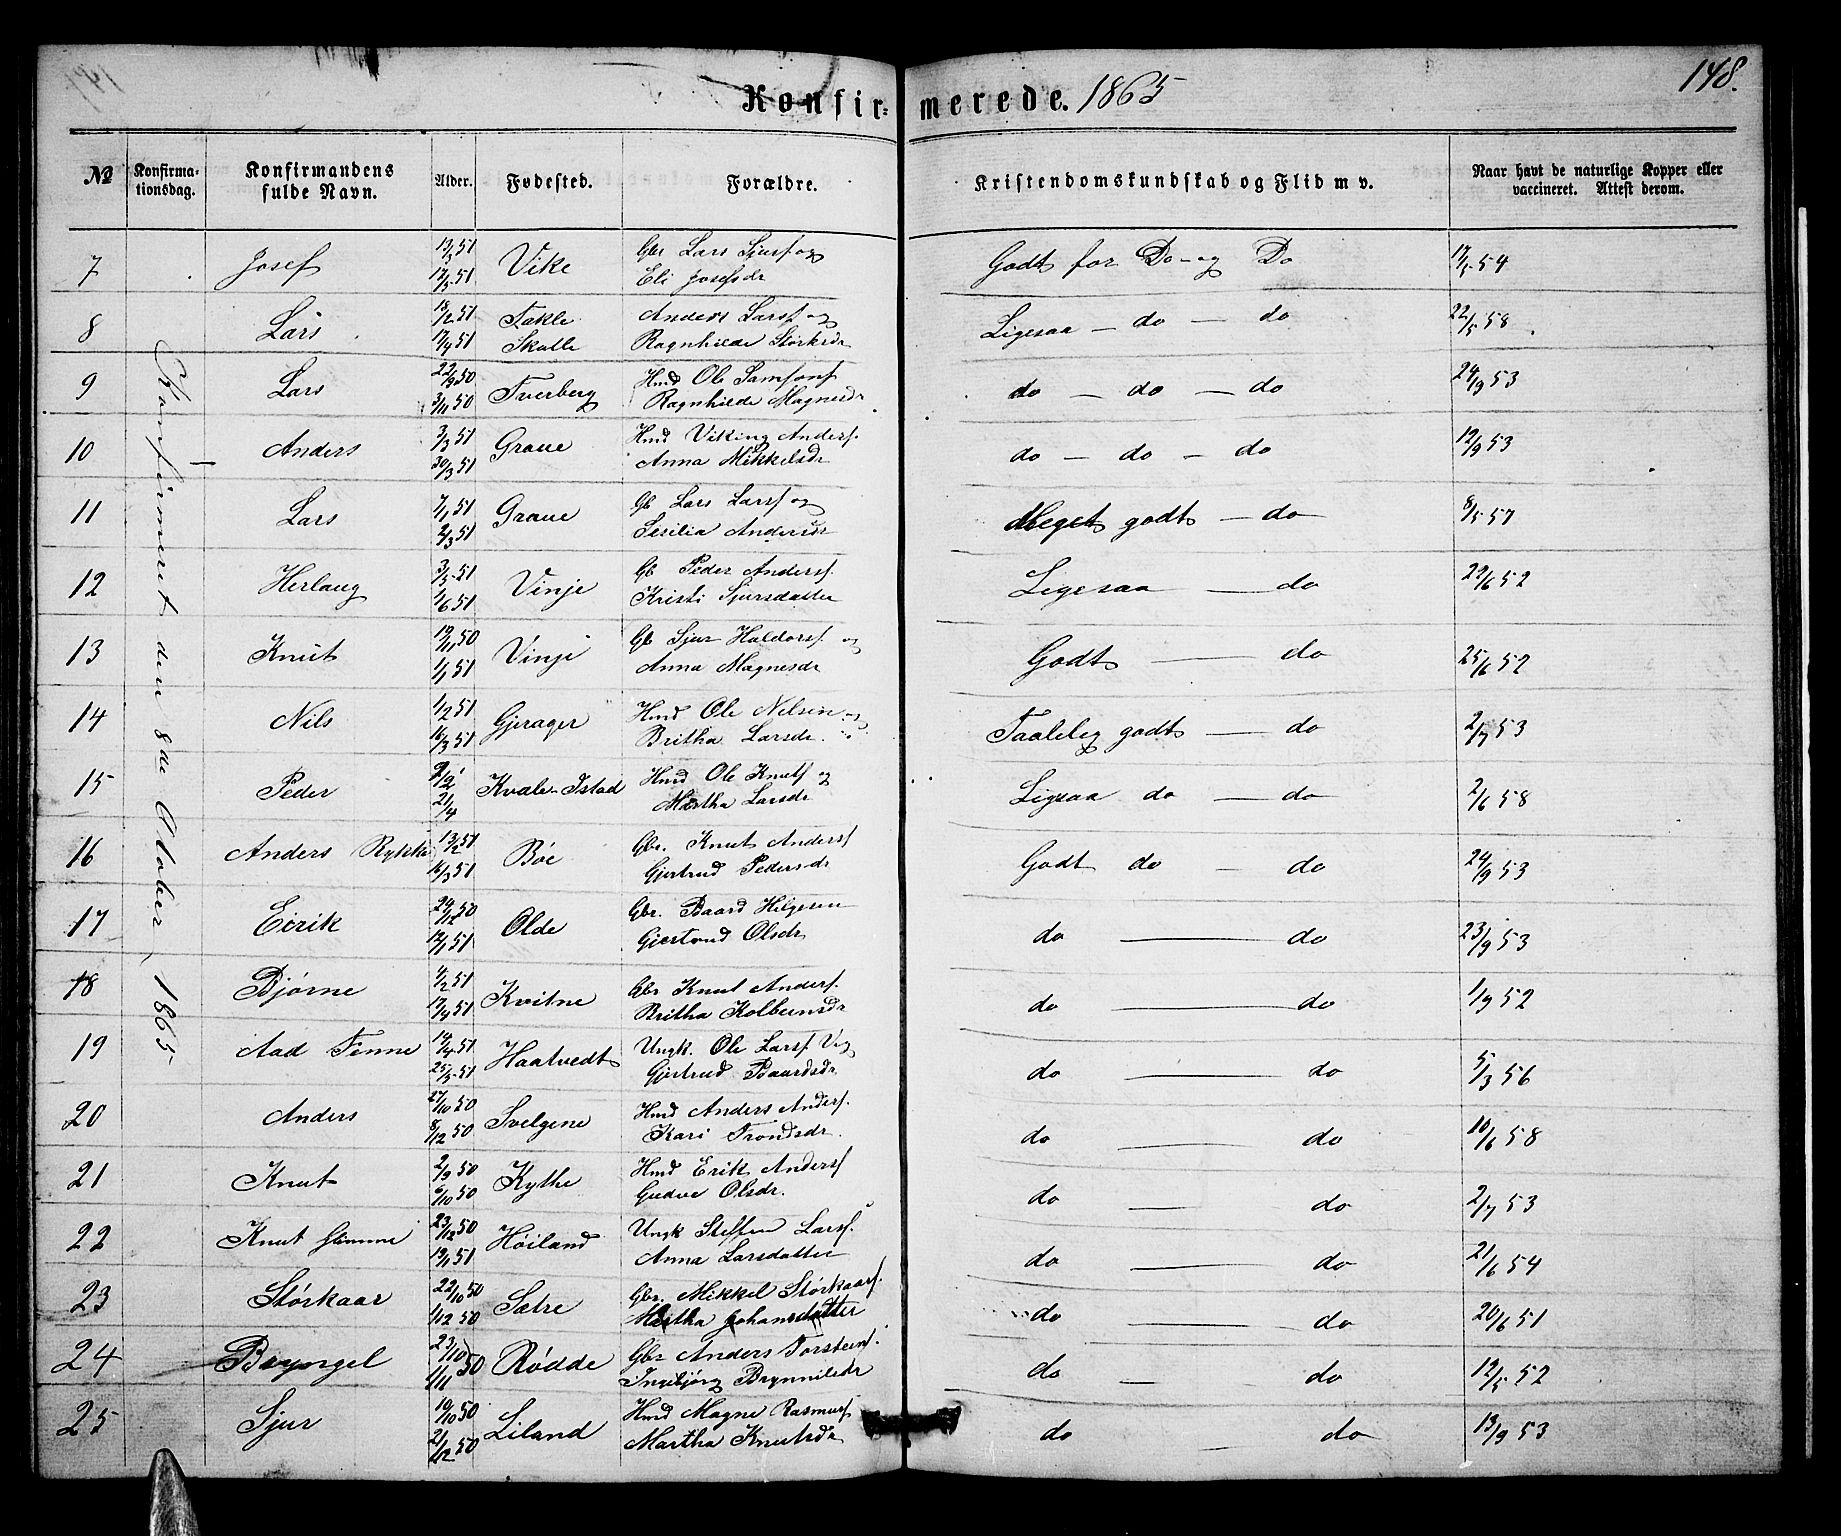 148.
Konfir=merede. 1865
№ Konfirma-tionsdag. Konfirmandens fulde Navn. Alder. Fødested. Forældre. Kristendomskundskab og Flid m v. Naar havt de naturlige Kopper eller vaccineret. Attest derom.
Konfirmeret den 8de Otober, 1865
7 Josef 13/3 51 Vike Gbr Lars Sjursf og Godt for Do og Do 17/5 54
17/5 51 Eli Josefsdr
8 Lars 18/2 51 Takle Anders Larsf og Ligesaa — do — do 22/5 58
17/4 51 Skulle Ragnhilde Størksdr
9 Lars 22/9 50 Tverberg Hmd Ole Samsonf do — do — do 24/9 53
3/11 50 Ragnhilde Magnesdr
10 Anders 3/3 51 Graue Hmd Viking Andersf. do — do — do 12/9 53
30/3 51 Anna Mikkelsdr
11 Lars 7/1 51 Graue Gb Lars Larsf og Meget godt — do 8/5 57
2/3 51 Sesilia Andersdr
12 Herlaug 3/5 51 Vinje Gb Peder Andersf. Ligesaa — do 22/6 52
1/6 51 Kristi Sjursdatter
13 Knut 19/11 50 Vinje Gb Sjur Haldorsf. og Godt — do 25/6 52
1/1 51 Anna Magnesdr
14 Nils 1/2 51 Gjerager Hmd Ole Nelsen og Taalelig godt — do 2/7 53
16/3 51 Britha Larsdr.
15 Peder 2/2 Kvale-Istad Hmd Ole Knutsf og Ligesaa do — do 2/6 58
21/4 Martha Larsdr
16 Anders Rykke 13/2 51 Böe Gbr. Knut Andersf Godt do — do 24/9 53
16/3 51 Gjertrud Pedersdr
17 Eirik 24/12 50 Olde Gbr. Baard Helgesen do — do 23/9 53
12/1 51 Gjertrud Olsdr
18 Bjørne 4/2 51 Kvitne Gbr Knut Andersf. do — do 1/9 52
17/4 51 Britha Kolbeinsdr
19 Aad Finne 14/4 51 Haatvedt Ungk. Ole Larsf. Og do — do 5/3 56
25/5 51 Gjertrud Baardsdr
20 Anders 27/10 50 Svelgene Hmd Anders Andersf. do — do 10/6 58
8/12 50 Kari Trondsdr.
21 Knut 2/9 50 Kythe Hmd Erik Andersf do — do 2/7 53
6/10 50 Gudve Olsdr.
22 Knut 23/12 50 Höiland Ungk Steffen Larsf. do — do 21/6 54
19/1 51 Anna Larsdatter
23 Størkaar 22/10 50 Sætre Gbr. Mikkel Størkaarf. do — do 20/6 51
1/12 50 Martha Johansdatter
24 Bryngel 23/10 50 Rödde Gbr Anders Torsteinf. do — do 12/5 52
1/11 Ingebjørg Brynnildsdr
25 Sjur 10/10 50 Liland Hmd Magne Rasmusf do — do 13/9 53
2/12 50 Martha Knutsdr